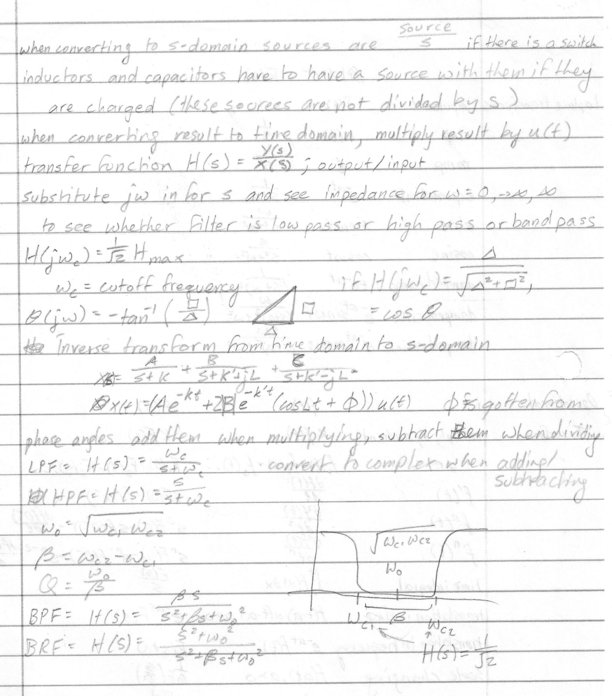 when converting to s-domain sources are source/s if there is a switch
inductors and capacitors have to have a source with them if they
are charged (these sources are not divided by s)
when converting result to time domain, multiply result by u(t)
transfer function H(s) = Y(s)/X(s) ; output/input
substitute jw in for s and see impedance for w=0, →∞, ∞
to see whether filter is low pass or high pass or band pass
H(jw_c) = 1/√2 H max
w_c = cutoff frequency if H(jw_c) = △/√(△²+□²),
θ(jw) = -tan⁻¹(□/△) △ □ = cos θ
Inverse transform from time domain to s-domain
A/(s+k) + B/(s+k'+jL) + C/(s+k'-jL)
x(t) = (Ae^(-kt) + 2|B|e^(-k't) (cos Lt + ϕ)) u(t) ϕ is gotten from
phase angles add them when multiplying, subtract them when dividing
LPF = H(s) = w_c/(s+w_c) convert to complex when adding/
subtracting
HPF = H(s) = s/(s+w_c)
w_o = √(w_c1 w_c2)
β = w_c2 - w_c1
Q = w_o/β
BPF = H(s) = βs/(s²+βs+w_o²)
BRF = H(s) = (s²+w_o²)/(s²+βs+w_o²)
√(w_c1 w_c2)
w_o
w_c1 β w_c2
H(s) = 1/√2